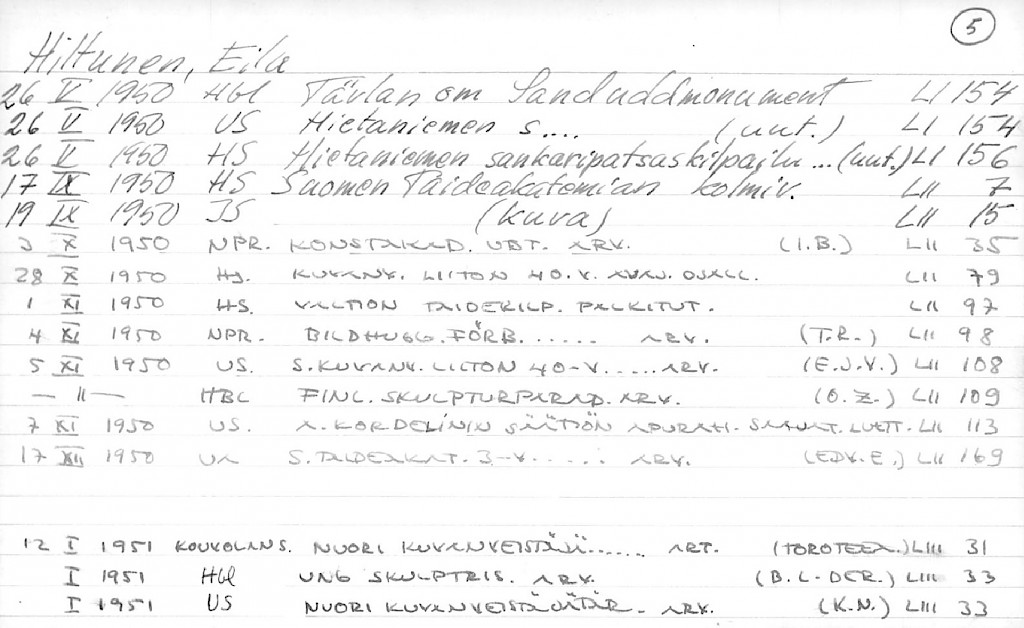 5
Hiltunen, Eila
26 V 1950 Hbl Tävlan om Sanduddmonument LI 154
26 V 1950 US Hietaniemen s.... (uut.) LI 154
26 V 1950 HS Hietaniemen sankaripatsaskilpailu ... (uut.) LI 156
17 IX 1950 HS Suomen Taideakatemian kolmiv. LII 7
19 IX 1950 IS (kuva) LII 15
3 X 1950 NPR. KONSTAKAD. UST. ARV. (I.B.) LII 35
28 X 1950 HS. KUVANV. LIITON 40.V. AVAJ. OSALL. LII 79
1 XI 1950 HS. VALTION TAIDEKILP. PALKITUT. LII 97
4 XI 1950 NPR. BILDHUGG. FÖRB. ...... ARV. (T.R.) LII 98
5 XI 1950 US. S. KUVANV. LIITON 40-V. ..... ARV. (E.J.V.) LII 108
— " — HBL FINL. SKULPTURPARAD. ARV. (O.Z.) LII 109
7 XI 1950 US. A. KORDELININ SÄÄTIÖN APURAH. SAANUT. LUETT. LII 113
17 XII 1950 S. TAIDEAKAT. 3-V. ..... ARV. (EDV.E.) LII 169
12 I 1951 KOUVOLAN S. NUORI KUVANVEISTÄJÄ...... ART. LIII 31
I 1951 Hbl UNG SKULPTRIS. ARV. (B.L-DER.) LIII 33
I 1951 US NUORI KUVANVEISTÄJÄTÄR. ARV. (K.N.) LIII 33